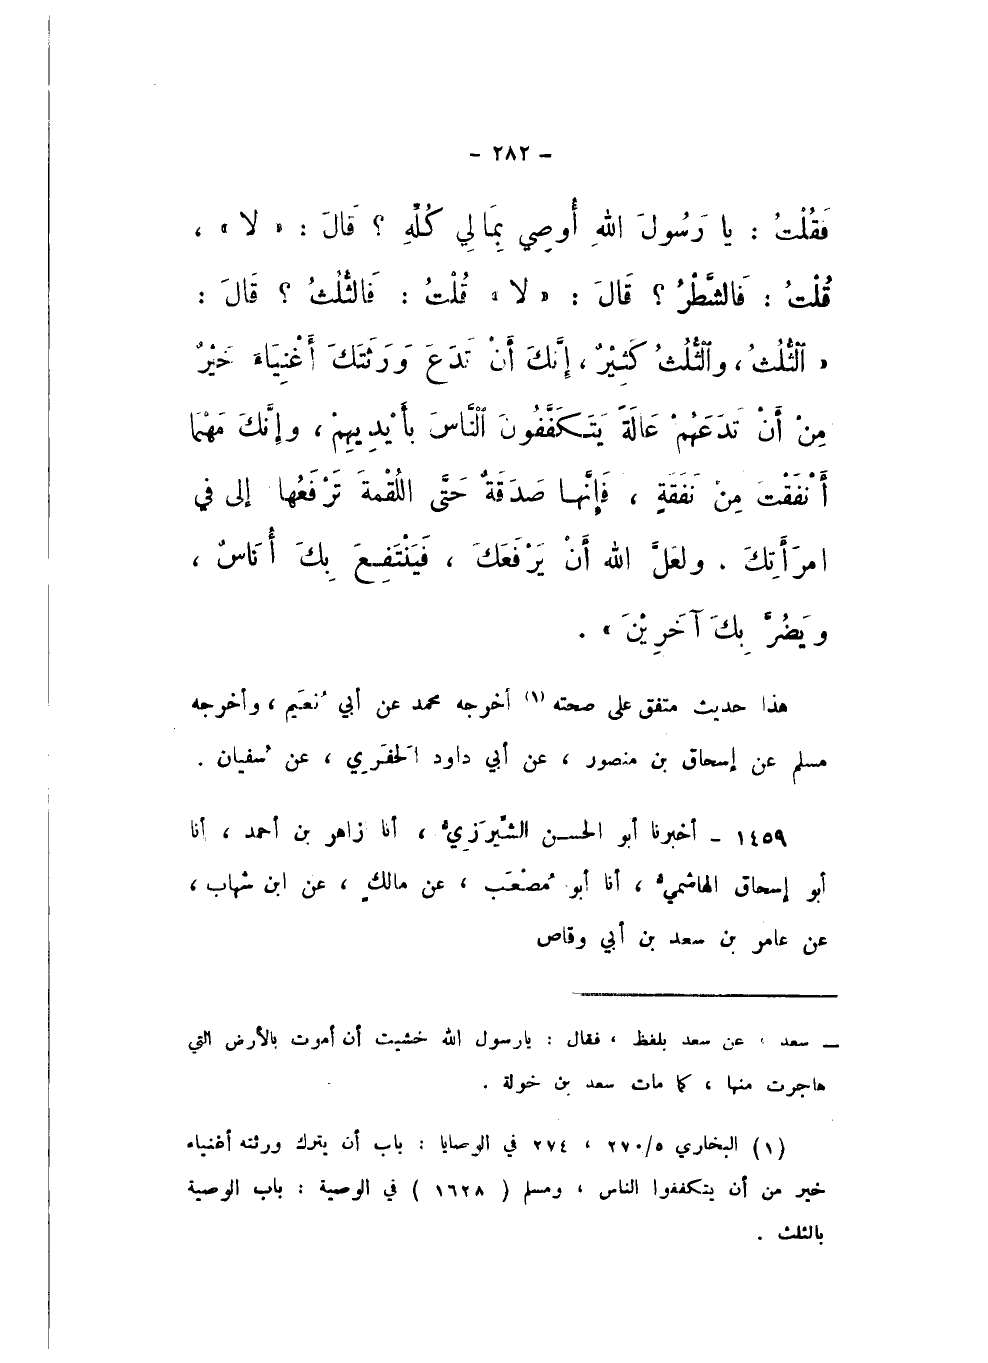 - ٢٨٢ -
فَقُلْتُ : يا رَسُولَ اللهِ أُوصِي بِمَالِي كُلِّهِ ؟ قَالَ : « لا » ،
قُلْتُ : فَالشَّطْرُ ؟ قَالَ : « لا » قُلْتُ : فَالثُّلُثُ ؟ قَالَ :
« ٱلثُّلُثُ ، وٱلثُّلُثُ كَثِيْرٌ ، إِنَّكَ أَنْ تَدَعَ وَرَثَتَكَ أَغْنِيَاءَ خَيْرٌ
مِنْ أَنْ تَدَعَهُمْ عَالَةً يَتَكَفَّفُونَ ٱلنَّاسَ بأَيْدِيهِمْ ، وإِنَّكَ مَهْمَا
أَنْفَقْتَ مِنْ نَفَقَةٍ ، فَإِنَّها صَدَقَةٌ حَتَّى اللُقْمةَ تَرْفَعُها إلى في
امرَأَتِكَ . ولعَلَّ الله أَنْ يَرْفَعَكَ ، فَيَنْتَفِعَ بِكَ أُنَاسٌ ،
ويَضُرَّ بِكَ آخَرِيْنَ » .
هذا حديث متفق على صحته (١) أخرجه محمد عن أبي نُعَيم ، وأخرجه
مسلم عن إسحاق بن منصور ، عن أبي داود الحَفَري ، عن سُفيان .
١٤٥٩ - أخبرنا أبو الحسن الشِّيرَزيُّ ، أنا زاهر بن أحمد ، أنا
أبو إسحاق الهاشميُّ ، أنا أبو مُصْعَب ، عن مالكٍ ، عن ابن شهاب ،
عن عامر بن سعد بن أبي وقاص
ـ سعد ، عن سعد بلفظ ، فقال : يارسول الله خشيت أن أموت بالأرض التي
هاجرت منها ، كما مات سعد بن خولة .
(١) البخاري ٢٧٠/٥ ، ٢٧٤ في الوصايا : باب أن يترك ورثته أغنياء
خير من أن يتكففوا الناس ، ومسلم ( ١٦٢٨ ) في الوصية : باب الوصية
بالثلث .